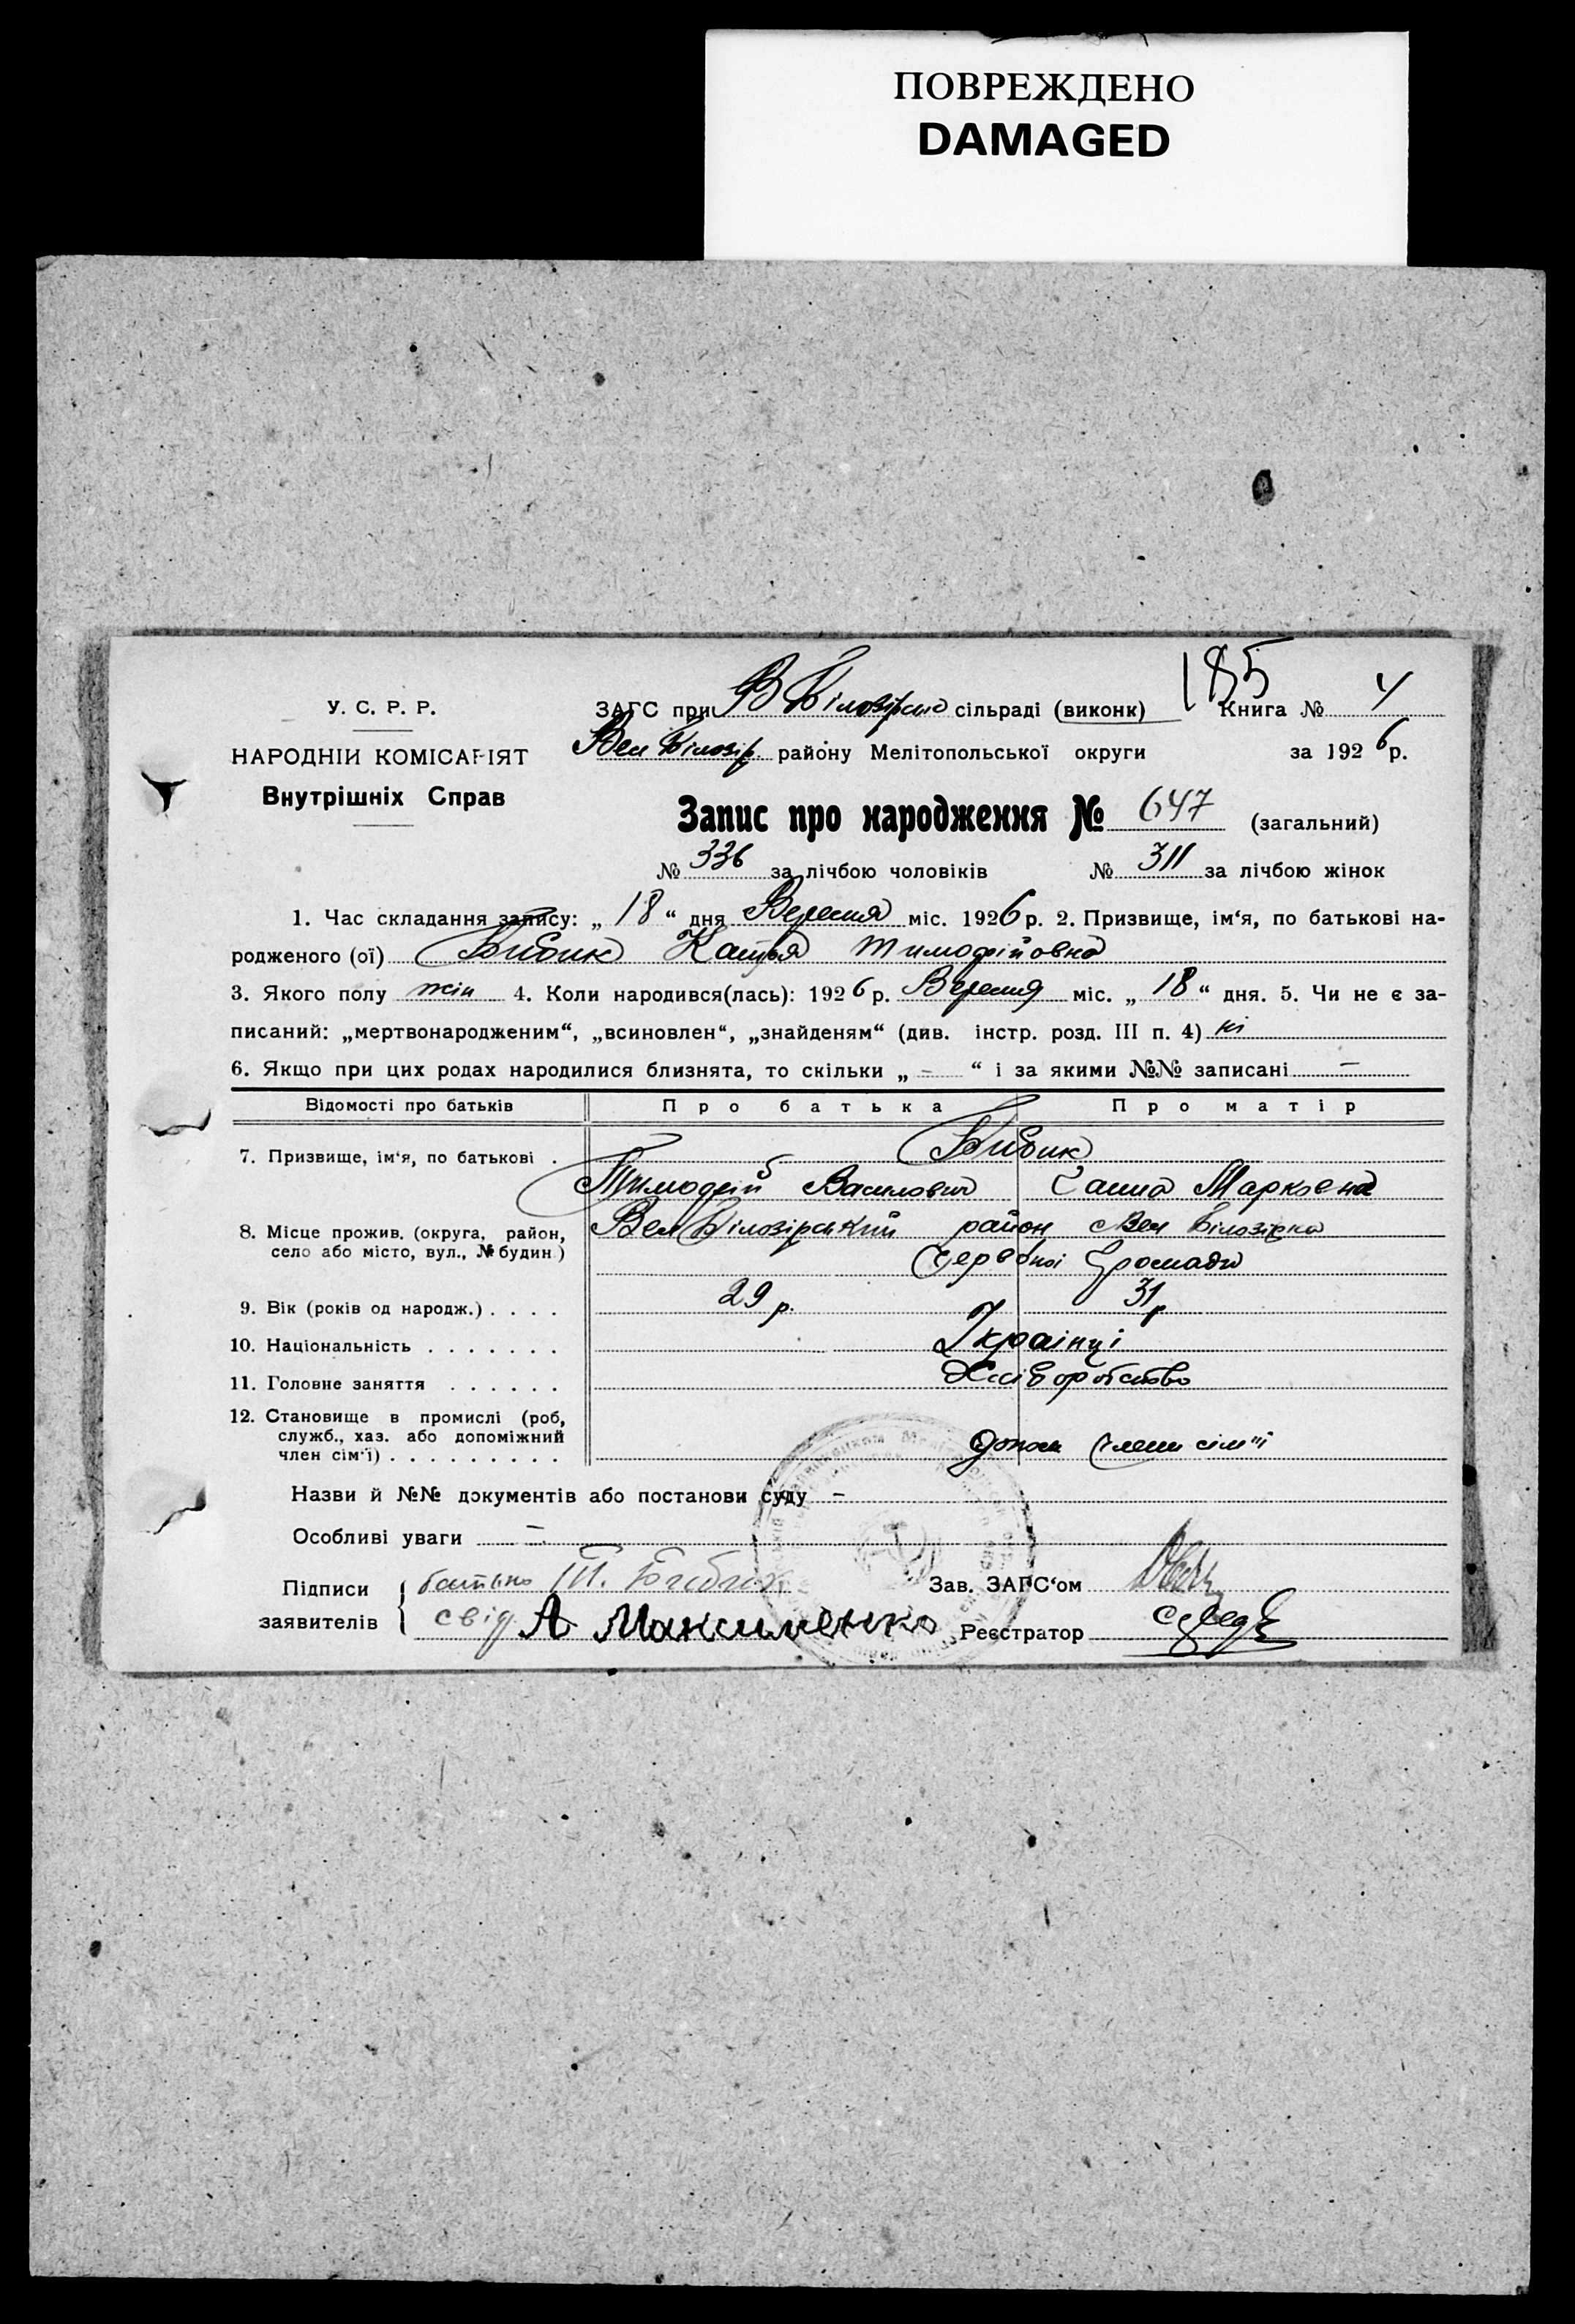 ПОВРЕЖДЕНО
DAMAGED
185
У. С. Р. Р.
ЗАГС при В Білозірське сільраді (виконк) Книга № 4
НАРОДНІЙ КОМІСАРІЯТ
Вел Білозір. району Мелітопольської округи за 1926 р.
Внутрішніх Справ
Запис про народження № 647 (загальний)
№ 336 за лічбою чоловіків № 311 за лічбою жінок
1. Час складання запису: „ 18 “ дня Вересня міс. 1926 р. 2. Призвище, ім‘я, по батькові на-
родженого (ої) Бибик Катря Тимофійовна
3. Якого полу жін 4. Коли народився(лась): 1926 р. Вересня міс. „ 18 “ дня. 5. Чи не є за-
писаний: „мертвонародженим“, „всиновлен“, „знайденям“ (див. інстр. розд. III п. 4) ні
6. Якщо при цих родах народилися близнята, то скільки „ - “ і за якими №№ записані —
Відомості про батьків Про батька Про матір
7. Призвище, ім‘я, по батькові . Бибик
Тимофей Василович Ганна Марковна
8. Місце прожив. (округа, район, село або місто, вул., № будин.) Вел Білозірський район с Вел Білозірка
Громади
9. Вік (років од народж.) . . . . 29 р. 31 р
10. Національність . . . . . . . Українці
11. Головне заняття . . . . . . Хліборобство
12. Становище в промислі (роб,
служб., хаз. або допоміжний
член сім‘ї) . . . . . . . . . допом члени сім"ї
Назви й №№ документів або постанови суду -
Особливі уваги —
Підписи заявителів { батько Т. Бибик Зав. ЗАГС‘ом
свід. А Максименко Реєстратор